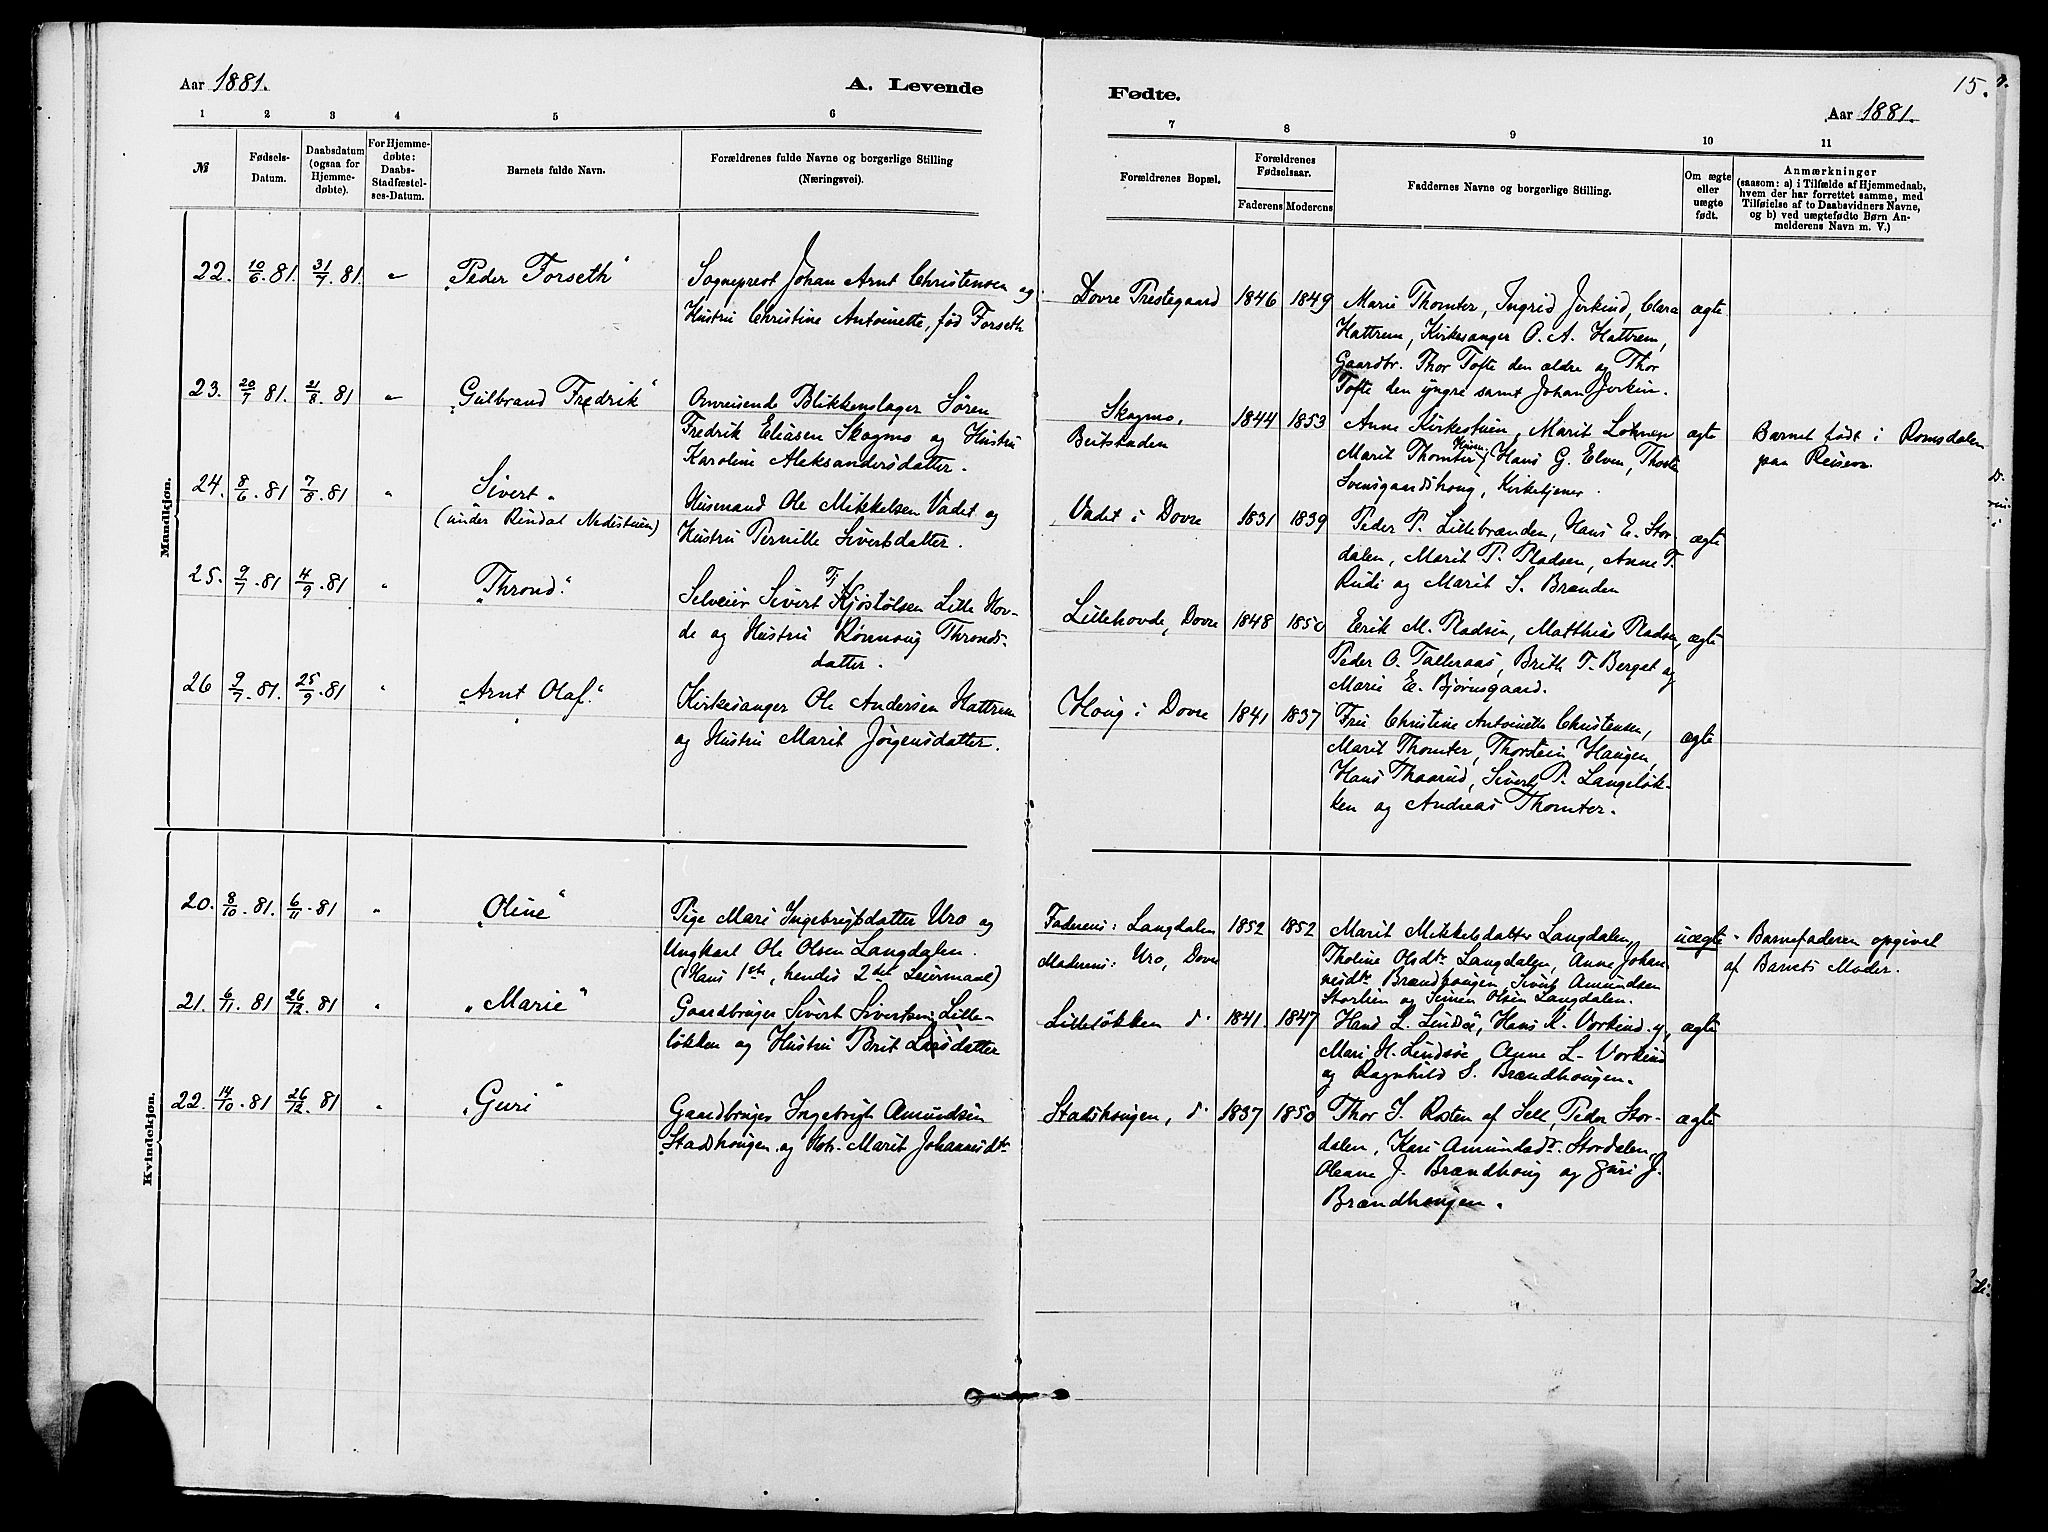 Aar 1881.
A. Levende
Fødte.
15.
Aar 1881.
1 2 3 4 5 6 7 8 9 10 11
№
Fødsels-
Datum.
Daabsdatum
(ogsaa for
Hjemme-
døbte).
For Hjemme-
døbte:
Daabs-
Stadfæstel-
ses-Datum.
Barnets fulde Navn.
Forældrenes fulde Navne og borgerlige Stilling
(Næringsvei).
Forældrenes Bopæl.
Forældrenes
Fødselsaar.
Faderens Moderens
Faddernes Navne og borgerlige Stilling.
Om ægte
eller
uægte
født.
Anmærkninger
(saasom: a) i Tilfælde af Hjemmedaab,
hvem der har forrettet samme, med
Tilføielse af to Daabsvidners Navne,
og b) ved uægtefødte Børn An-
melderens Navn m. V.)
Mandkjøn.
22. 10/6.81. 31/7.81. „ „Peder Forseth“
Sogneprest Johan Arnt Christensen og
Hustru Christine Antoinette, fød Forseth
Dovre Prestegaard 1846 1849
Marie Thomter, Ingrid Jerkind, Clara
Hattrem, Kirkesanger O. A. Hattrem,
Gaardbr. Thor Tofte den ældre og Thor
Tofte den yngre samt Johan Jerkin.
ægte
23. 20/7 81. 21/8. 81 „ „Gulbrand Fredrik“
Omreisende Blikkenslager Søren
Fredrik Eliasen Skagmo og Hustru
Karoline Aleksandersdatter.
Skagmo,
Beitstaden
1844 1853
Anne Kirkestuen, Marit
Marit Thomter, Hans G. Elven,
Svensgaardshoug, Kirketjener.
ægte
Barnet født i Romsdalen
paa Reisen.
24. 8/6.81 7/8.81 „ Sivert“
(under Rindal Nedistuen)
Husmand Ole Mikkelsen Vadet og
Hustru Pernille Sivertsdatter.
Vadet i Dovre 1831 1839
Peder P. Lillebrænden, Hans E. Stor-
dalen, Marit P. Pladsen, Anne T.
Rudi og Marit S. Brænden
ægte
25. 9/7.81 4/9.81 „ „Thrond.“
Selveier Sivert Kjøstølsen Lille Hov-
de og Hustru Rønnoug Thronds-
datter.
Lillehovde, Dovre 1848 1850
Erik M. Pladsen, Matthias Pladsen,
Peder O. Talleraas, Brith T. Berget og
Marie E. Bjørnsgaard.
ægte
26 9/7.81. 25/9.81 „ „Arnt Olaf.“
Kirkesanger Ole Andersen Hattrem
og Hustru Marit Jørgensdatter.
Houg i Dovre 1841 1837
Fru Christine Antoinette Christensen,
Marit Thomter, Thorstein Haugen,
Hans Thaarud, Sivert P. Langeløk-
ken og Andreas Thomter.
ægte
Kvindekjøn.
20. 8/10.81. 6/11.81 „ „Oline“
Pige Mari Ingebrigtsdatter Uro og
Ungkarl Ole Olsen Langdalen.
(Hans 1ste, hendes 2det Leiermaal)
Faderens: Langdalen
Moderens: Uro, Dovre
1852 1852
Marit Mikkelsdatter Langdalen,
Tholine Olsdtr Langdalen, Anne Johan-
nesdtr Brændhougen, Sivert Amundsen
Storlien og Simen Olsen Langdalen.
uægte
Barnefaderen opgivet
af Barnets Moder.
21. 6/11.81 26/12.81 „ „Marie“
Gaardbruger Sivert Sivertsen Lille-
løkken og Hustru Brit Larsdatter
Lilleløkken d. 1841. 1847
Hans L. Lindsøe, Hans K. Vorkind. y,
Mari H. Lindsøe, Anne L. Vorkind
og Ragnhild S. Brændhougen.
ægte
22. 14/10.81 26/12.81 „ „Guri“
Gaardbruger Ingebrigt Amundsen
Stadshougen og Hstr. Marit Johannesdtr
Stadshougen, d. 1837 1850
Thor S. Rosten af Sell, Peder Stor-
dalen, Kari Amundsdr. Stordalen,
Oleane J. Brændhoug og Guri J.
Brændhougen.
ægte